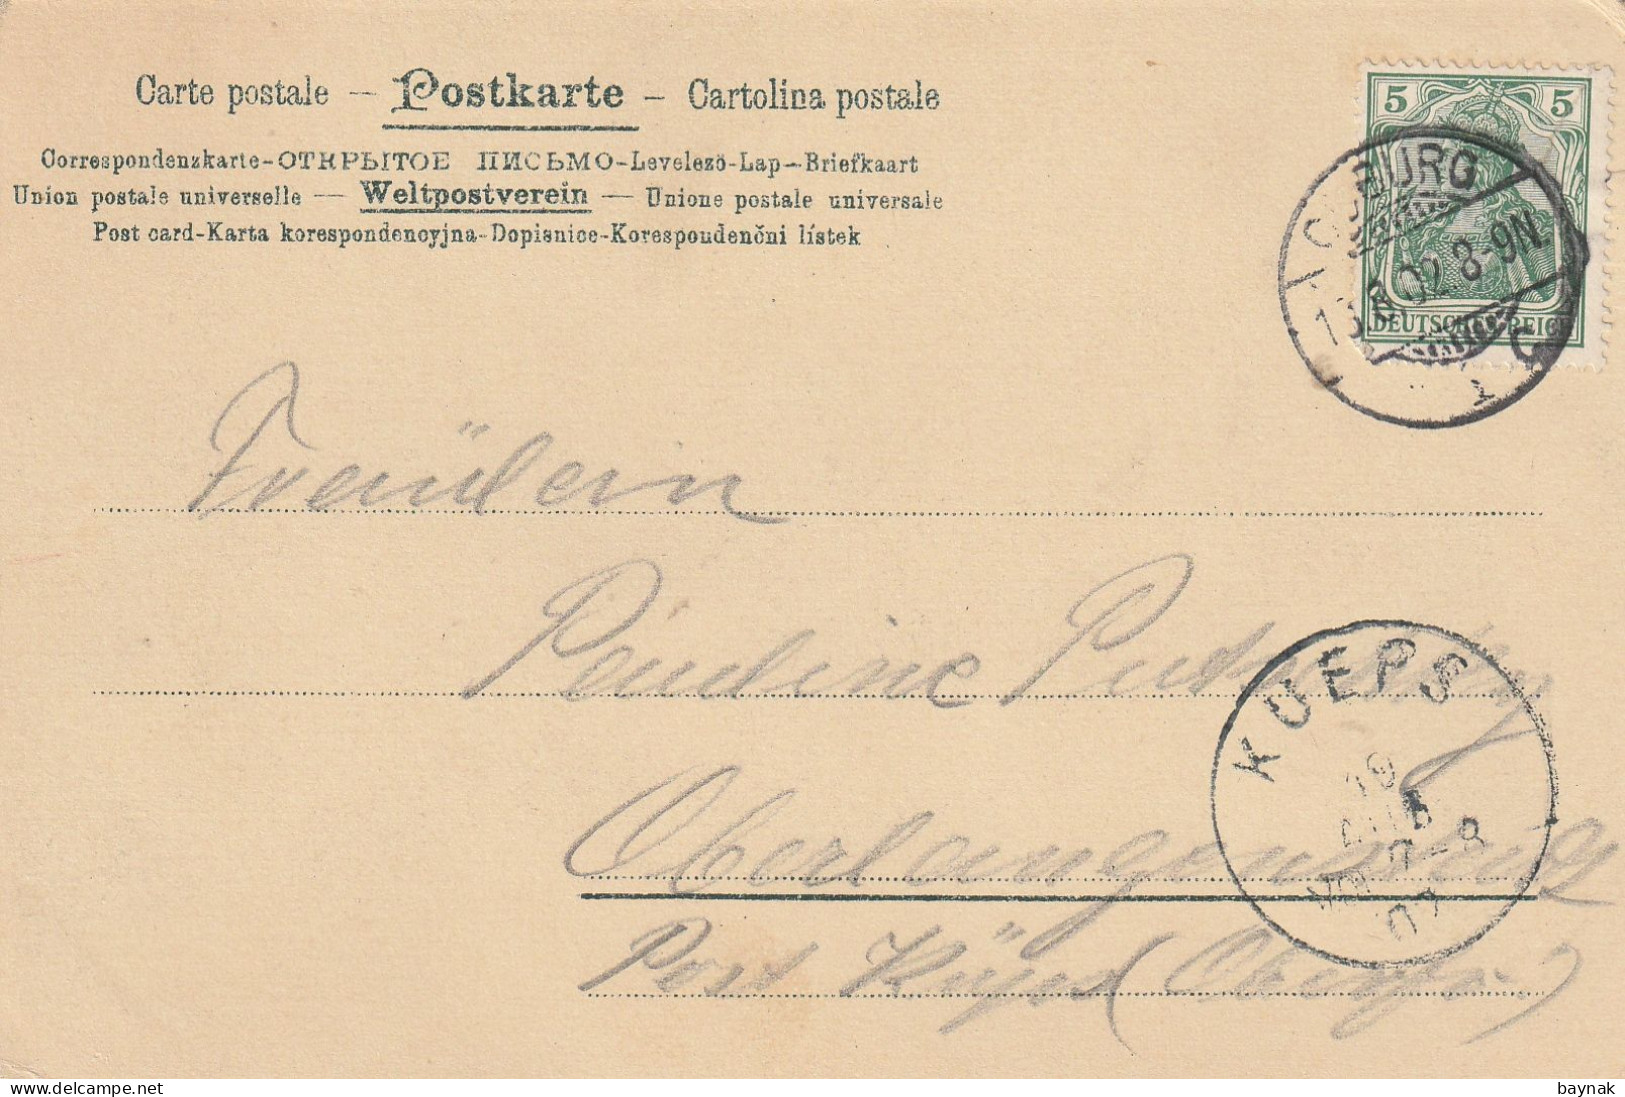 Carte postale — Postkarte — Cartolina postale
Correspondenzkarte-ОТКРЫТОЕ ПИСЬМО-Levelező-Lap-Briefkaart
Union postale universelle — Weltpostverein — Unione postale universale
Post card-Karta korespondencyjna-Dopisnice-Korespondenční lístek
5 5
DEUTSCHES REICH
BURG
02 8-9N.
Freülein
Oberlangenstadt
Post Küps (Oberfr.)
KUEPS
19
AUG
VOR 7-8
02
baynak